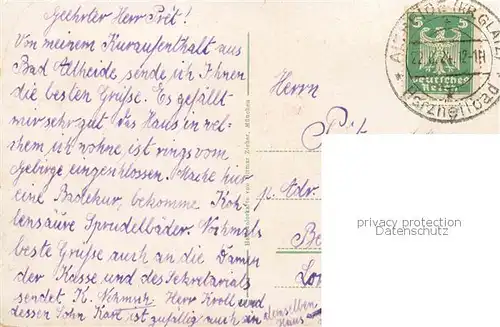 Geehrter Herr Prêt!
Von meinem Kuraufenthalt aus
Bad Altheide sende ich Ihnen
die besten Grüße. Es gefällt
mir sehr gut. Das Haus in wel-
chem ich wohne ist rings vom
Gebirge eingeschlossen. Mache hier
eine Badekur, bekomme Koh-
lensäure Sprudelbäder. Nochmals
beste Grüße auch an die Damen
der Kasse und des Sekretariats
sendet K. Herr Kroll und
dessen Sohn Karl ist zufällig auch in demselben
Haus
Herrn
p. Adr.
5 5
Deutsches
Reich
Herzheilbad
privacy protection
www.ansichtskarten-center.de